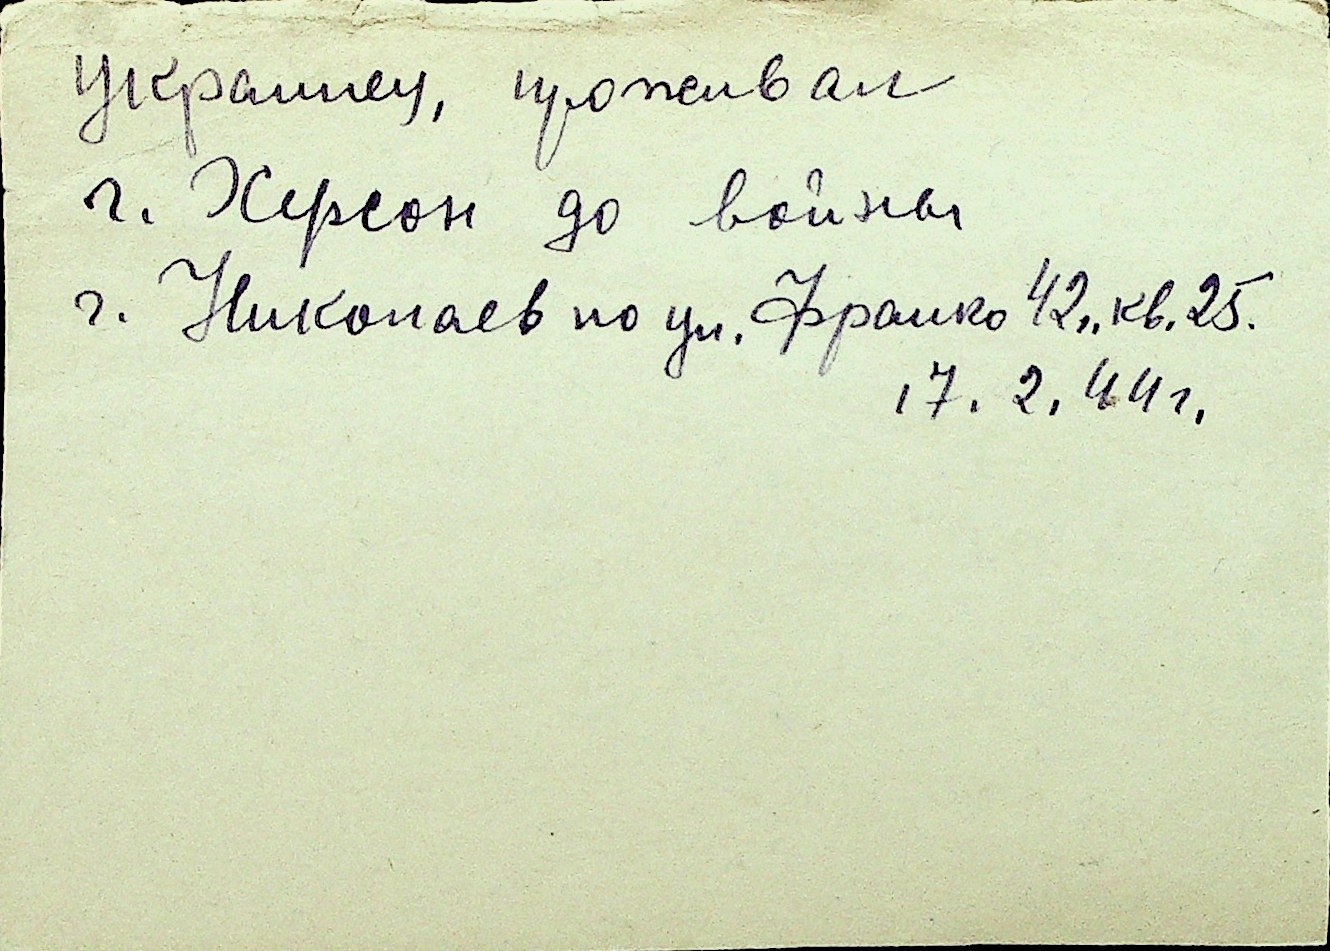 украинец, проживал
г. Херсон до войны
г. Николаев по ул. Франко 42,, кв. 25.
17. 2. 44 г.